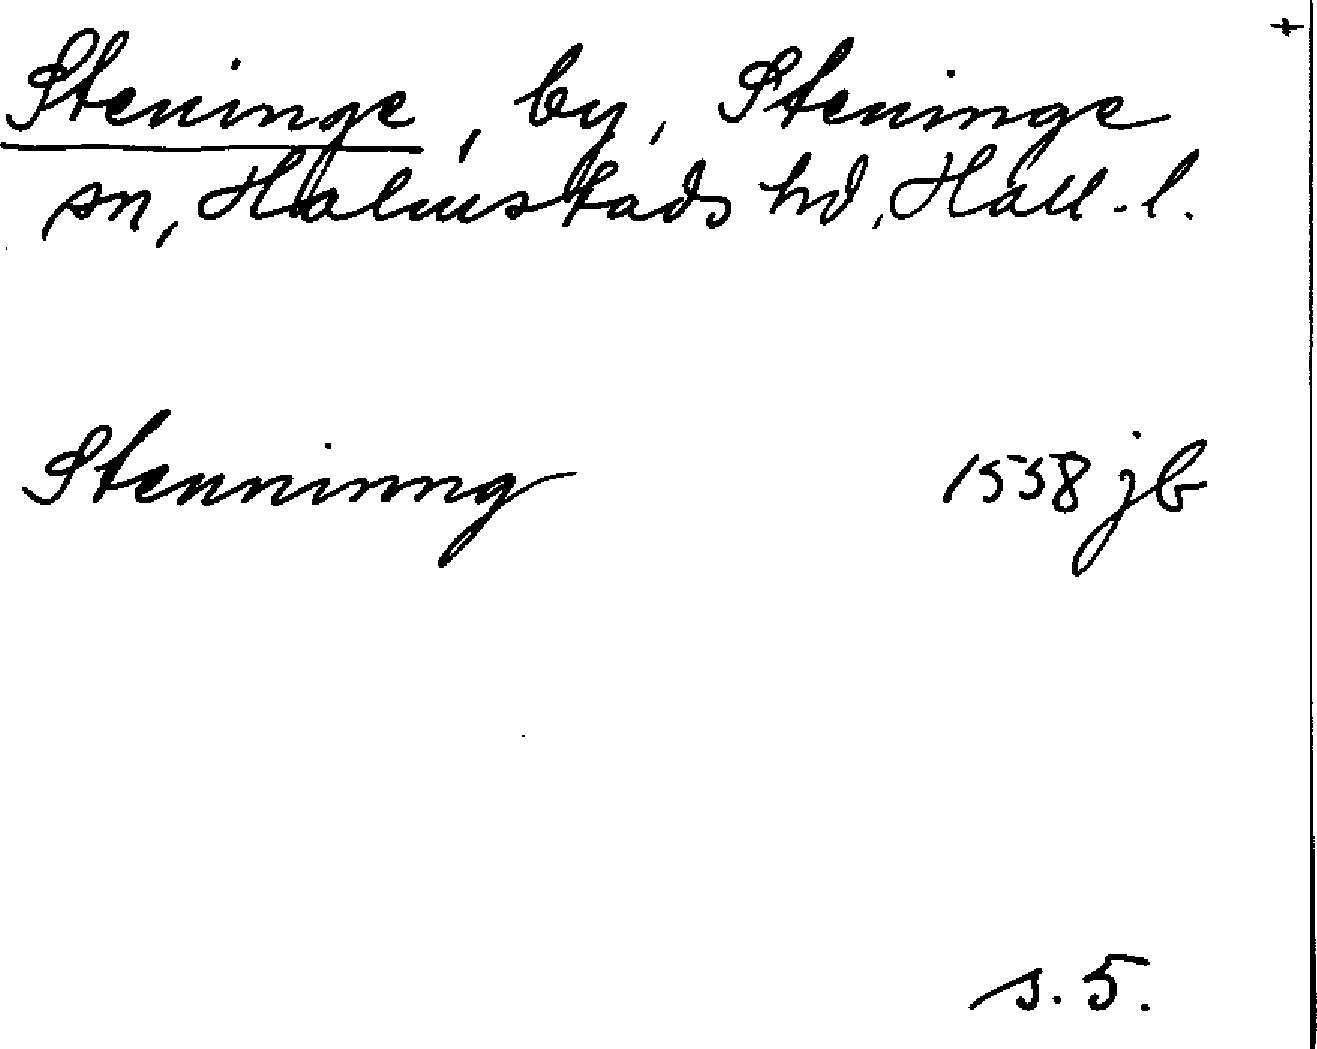 Steninge, by, Steninge
sn, Halmstads hd, Hall. l.
Stenninng 1558 jb
s. 5.